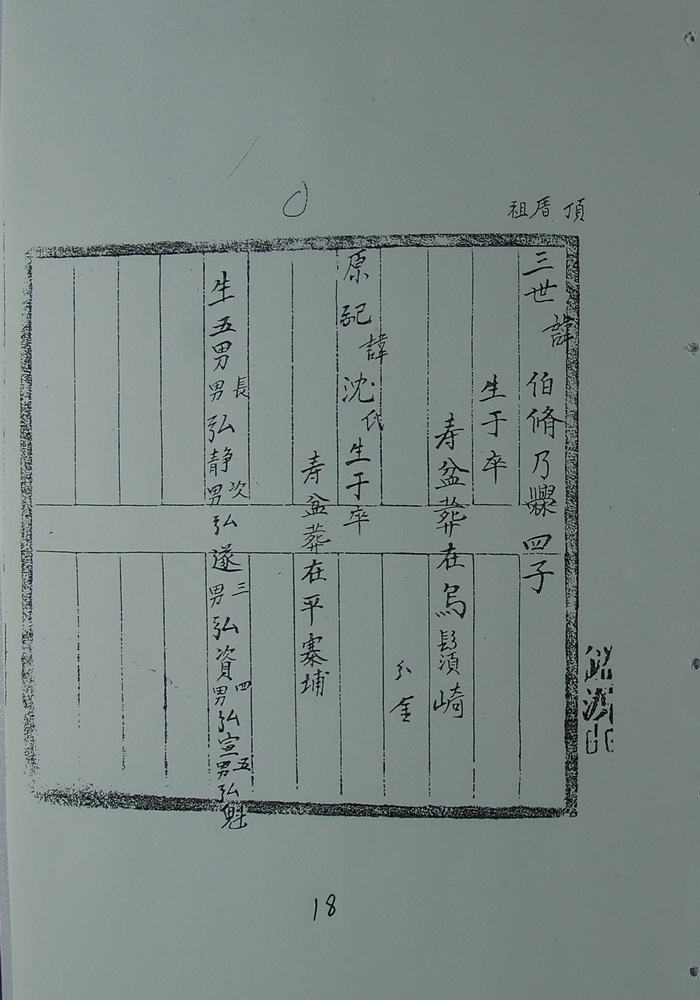 祖厝頂
三世諱伯脩乃鸜四子
生于卒
寿盆葬在烏鬚須崎
分金
原配諱沈氏生于卒
寿盆葬在平寨埔
生五男長男弘静次男弘遂三男弘資四男弘宣五男弘魁
18